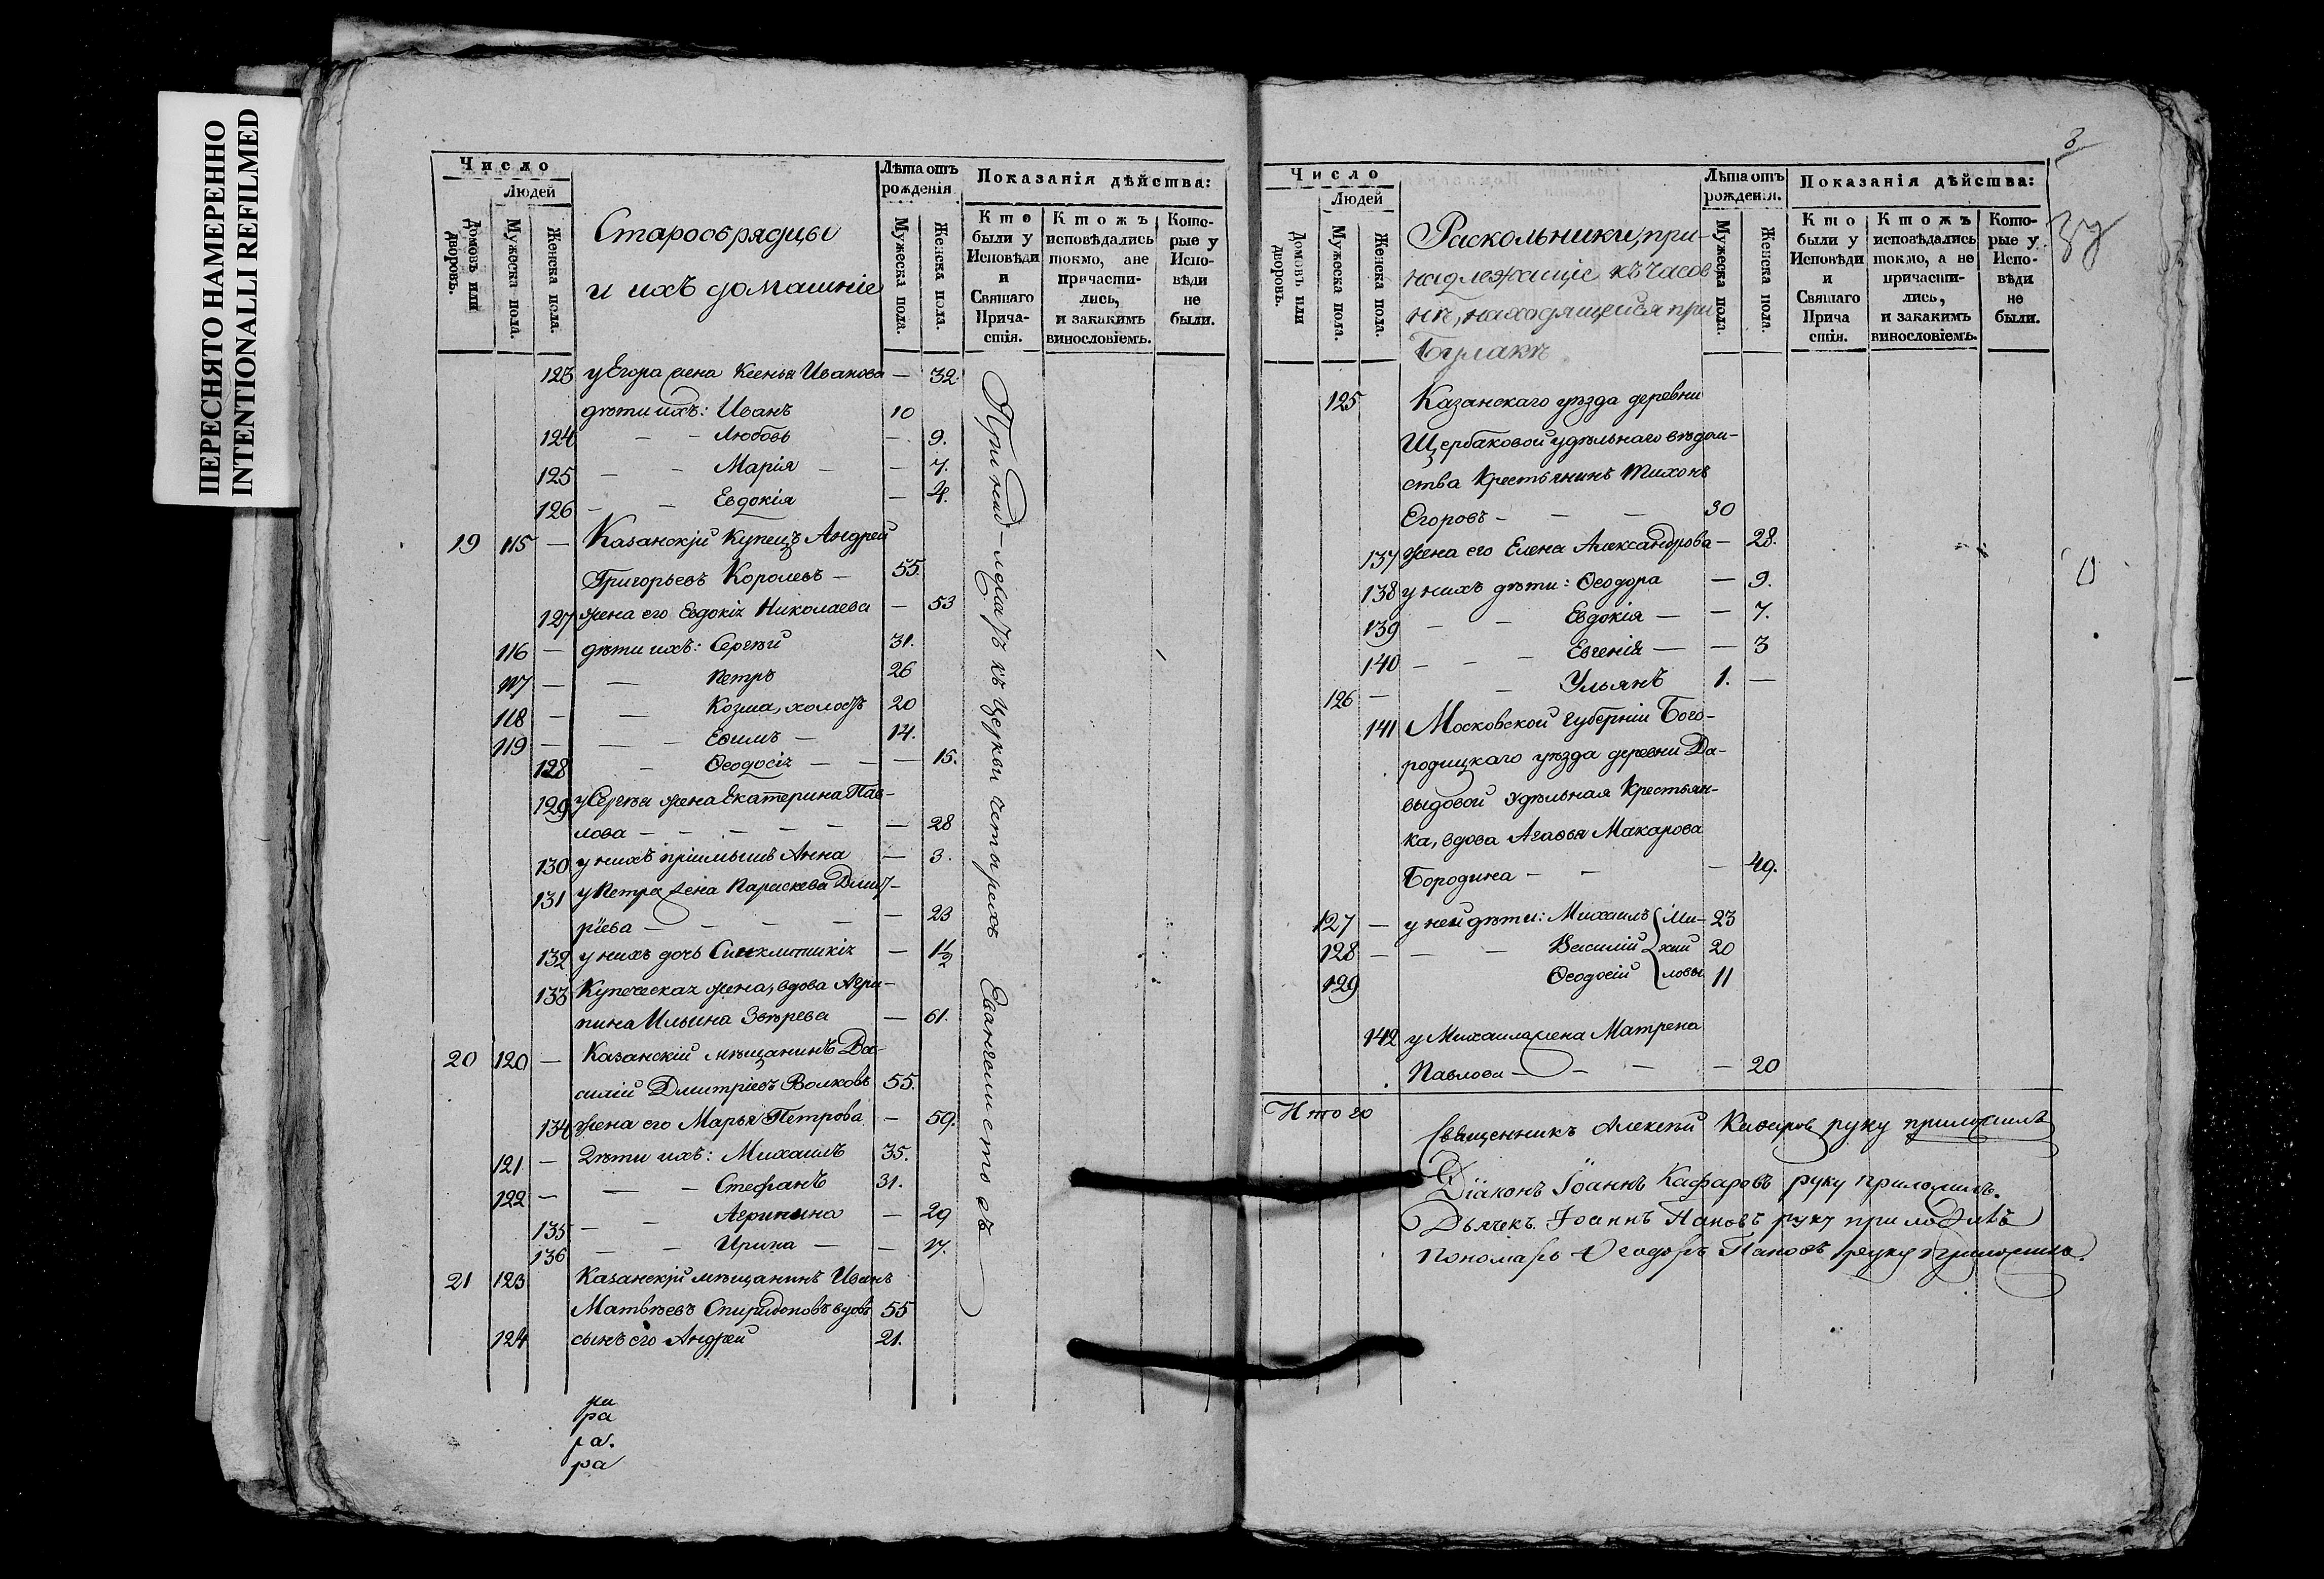 ПЕРЕСНЯТО НАМЕРЕННО
INTENTIONALLI REFILMED
Число
Людей
Домовъ или дворовъ.
Мужеска пола.
Женска пола.
Старообрядцы
и ихъ домашніе
Лѣта отъ рожденія
Мужеска пола.
Женска пола.
Показанія дѣйства:
Кто были у Исповѣди и Святаго Прича-стія.
Ктожъ исповѣдались токмо, ане причасти-лись, и закакимъ винословіемъ.
Кото-рые у Испо-вѣди не были.
123 у Егора жена Ксенья Иванова — 32.
дѣти ихъ: Иванъ 10
124 — — Любовь — 9.
125 — — Марія — — 7.
126 — — Евдокія — 4.
19 115 — Казанскій Купецъ Андрей
Григорьевъ Королевъ — 55.
127 жена его Евдокія Николаева — 53
116 — дѣти ихъ: Сергѣй 31.
117 — — Петръ 26
118 — — Козма, холостъ 20
119 — — — Евимъ — 14.
128 — Ѳеодосія — — — 15.
129 у Сергѣя жена Екатерина Пав-
лова — — — — — — 28
130 у нихъ пріимышъ Анна — 3.
131 у Петра жена Параскева Дмит-
ріева — — — — — 23
132 у нихъ дочь Синклитикія — 1½
133 Купеческая жена, вдова Агри-
пина Ильина Звѣрева — 61.
20 120 — Казанскій мѣщанинъ Ва-
силій Дмитріевъ Волковъ 55.
134 жена его Марья Петрова — 59.
121 — Дѣти ихъ: Михаилъ 35.
122 — — — Стефанъ 31.
135 — — Агрипина — 29
136 — — Ирина — — 17.
21 123 Казанскій мѣщанинъ Иванъ
Матвѣевъ Спиридоновъ вдовъ 55
124 сынъ его Андрей 21.
Принад-лежатъ къ церкви четырехъ Евангелистовъ
ра
ра
ра.
ра
8
37
Число
Людей
Домовъ или дворовъ.
Мужеска пола.
Женска пола.
Раскольники, при-
надлежащіе къ часов
нѣ, находящейся при
Булакѣ
Лѣта отъ рожденія.
Мужеска пола.
Женска пола.
Показанія дѣйства:
Кто были у Исповѣди и Святаго Прича стія.
Ктожъ исповѣдались токмо, а не причасти-лись, и закакимъ винословіемъ.
Кото-рые у Испо-вѣди не были.
125 Казанскаго уѣзда деревни
Щербаковой удѣльнаго вѣдом-
ства Крестьянинъ Тихонъ
Егоровъ — — — 30
137 жена его Елена Александрова — 28.
138 у нихъ дѣти: Ѳеодора — 9.
139 — — Евдокія — — 7.
140 — — — Евгенія — — 3
126 — — Ульянъ 1. —
141 Московской губерніи Бого-
родицкаго уѣзда деревни Да-
выдовой Удѣльная Крестьян-
ка, вдова Агаѳья Макарова
Бородина — — — 49.
127 — у ней дѣти: Михаилъ { Ми- 23
128 — — — Василій { хай 20
129 Ѳеодосій { ловы 11
142 у Михаила жена Матрена
Павлова — — — — 20
Итого
Священникъ Алексѣй Кафаровъ руку приложилъ
Діаконъ Іоаннъ Кафаровъ руку приложилъ.
Дьячекъ Іоаннъ Пановъ руку приложилъ
Пономарь Ѳеодоръ Пановъ руку приложилъ.